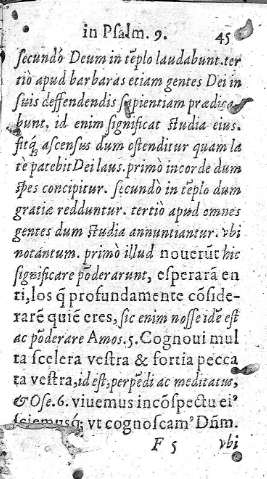 in Psalm. 9. 45
secundó Deum in tẽplo laudabunt. ter
tiò apud barbaras etiam gentes Dei in
suis deffendendis sapientiam prædica
bunt. id enim significat studia eius.
fitq́; ascensus dum ostenditur quam la
tè patebit Dei laus. primò in corde dum
spes concipitur. secundo in tẽplo dum
gratiæ redduntur. tertiò apud omnes
gentes dum studia annuntiantur. vbi
notantum. primo illud nouerũt hic
significare põderarunt, esperarã en
ti, los q̃ profundamente cõside-
rarẽ quiẽ eres, sic enim nosse idẽ est
ac põderare Amos. 5. Cognoui mul
ta scelera vestra & fortia pecca
ta vestra, id est, perpẽdi ac meditatus,
& Ose. 6. viuemus incõspectu ei'
sciemusq; vt cognoscam' Dñm.
F 5 vbi